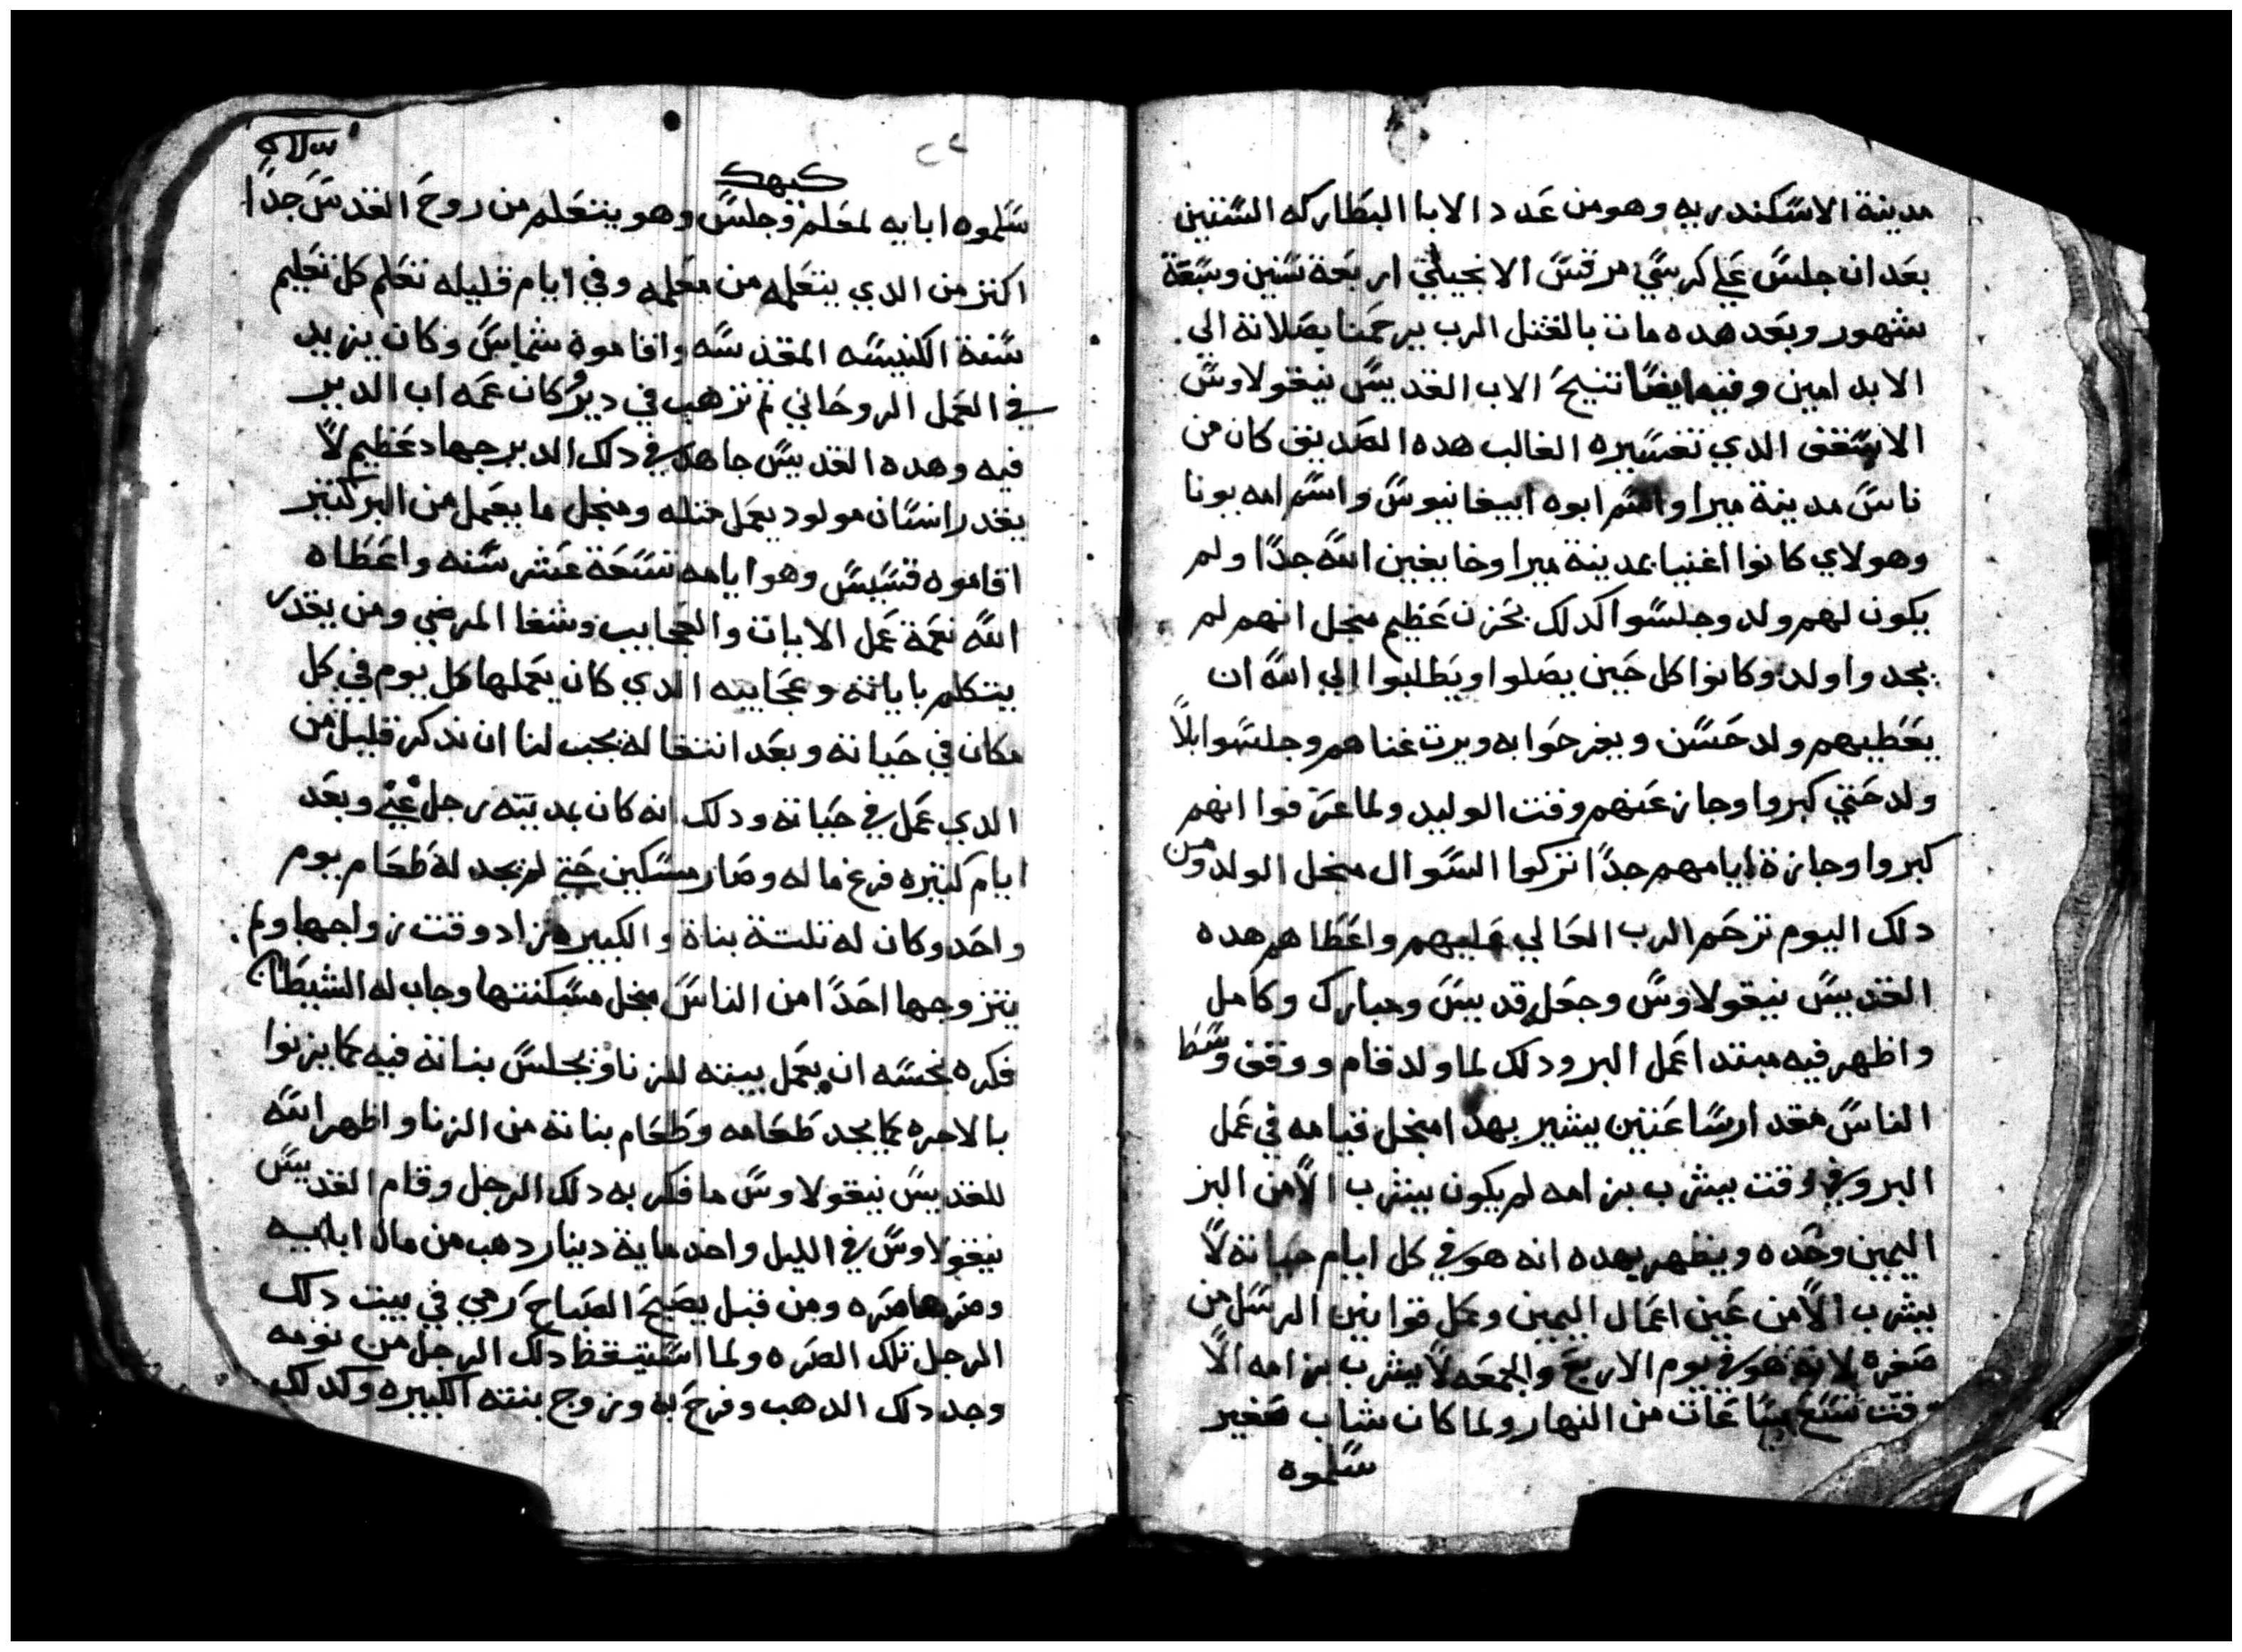 مدينة الاسكندريه وهو من عدد الابا البطاركه الستين
بعد ان جلس علي كرسي مرقس الانجيلي اربعة سنين وسبعة
شهور وبعد هده مات بالقتل الرب يرحمنا بصلاته الي
الابد امين وفيه ايضا تنيح الاب القديس نيقولاوس
الاسقف الدي تفسيره الغالب هده الصديق كان من
ناس مدينة ميرا واسم ابوه ابيفانيوس واسم امه يونا
وهولاي كانوا اغنيا بمدينة ميرا وخايفين الله جدا ولم
يكون لهم ولد وجلسوا كدلك بحزن عظيم منجل انهم لم
يجدوا ولد وكانوا كل حين يصلوا ويطلبوا الي الله ان
يعطيهم ولد حسن ويفرحوا به ويرت غناهم وجلسوا بلا
ولد حتي كبروا وجاز عنهم وقت الوليد ولما عرفوا انهم
كبروا وجازة ايامهم جدا تركوا السوال منجل الولد ومن
دلك اليوم ترحم الرب العالي عليهم واعطاهم هده
القديس نيقولاوس وجعل قديس ومبارك وكامل
واظهر فيه مبتدا عمل البر ودلك لما ولد قام ووقف وسط
الناس مقدار ساعتين يشير بهدا منجل قيامه في عمل
البر وفي وقت يشرب بز امه لم يكون يشرب الا من البز
اليمين وحده ويظهر بهده انه هو في كل ايام حياته لا
يشرب الا من عين اعمال اليمين وعمل قوانين الرسل من
صغره لانه هو في يوم الاربع والجمعه لا يشرب بز امه الا
وقت تسع ساعات من النهار ولما كان شاب صغير
سلموه
كيهك
سلموه ابايه لمعلم وجلس وهو يتعلم من روح القدس جدا
اكتر من الدي يتعلمه من معلمه وفي ايام قليله تعلم كل تعليم
سنة الكنيسه المقدسه واقاموه شماس وكان يزيد
في العمل الروحاني تم ترهب في دير وكان عمه اب الدير
فيه وهده القديس جاهد في دلك الدير جهاد عظيم لا
يقدر انسان مولود يعمل متله ومنجل ما يعمل من البر كتير
اقاموه قسيس وهو ايامه تسعة عشر سنه واعطاه
الله نعمة عمل الايات والعجايب وشفا المرضي ومن يقدر
يتكلم باياته وعجايبه الدي كان يعملها كل يوم في كل
مكان في حياته وبعد انتقاله يجب لنا ان ندكر قليل من
الدي عمل في حياته ودلك انه كان بمدينته رجل غني وبعد
ايام كتيره فرغ ماله وصار مسكين حتي لم يجد له طعام يوم
واحد وكان له تلتة بناة والكبيره زاد وقت زواجها ولم
يتزوجها احدا من الناس منجل مسكنتها وجاب له الشيطان
فكره نجسه ان يعمل بيته للزنا ويجلس بناته فيه كما يزنوا
بالاجره كما يجد طعامه وطعام بناته من الزنا واظهر الله
للقديس نيقولاوس ما فكر به دلك الرجل وقام القديس
نيقولاوس في الليل واخد ماية دينار دهب من مال ابايه
وصرها صره ومن قبل يصبح الصباح رمي في بيت دلك
الرجل تلك الصره ولما استيقظ دلك الرجل من نومه
وجد دلك الدهب وفرح به وزوج بنته الكبيره وكدلك